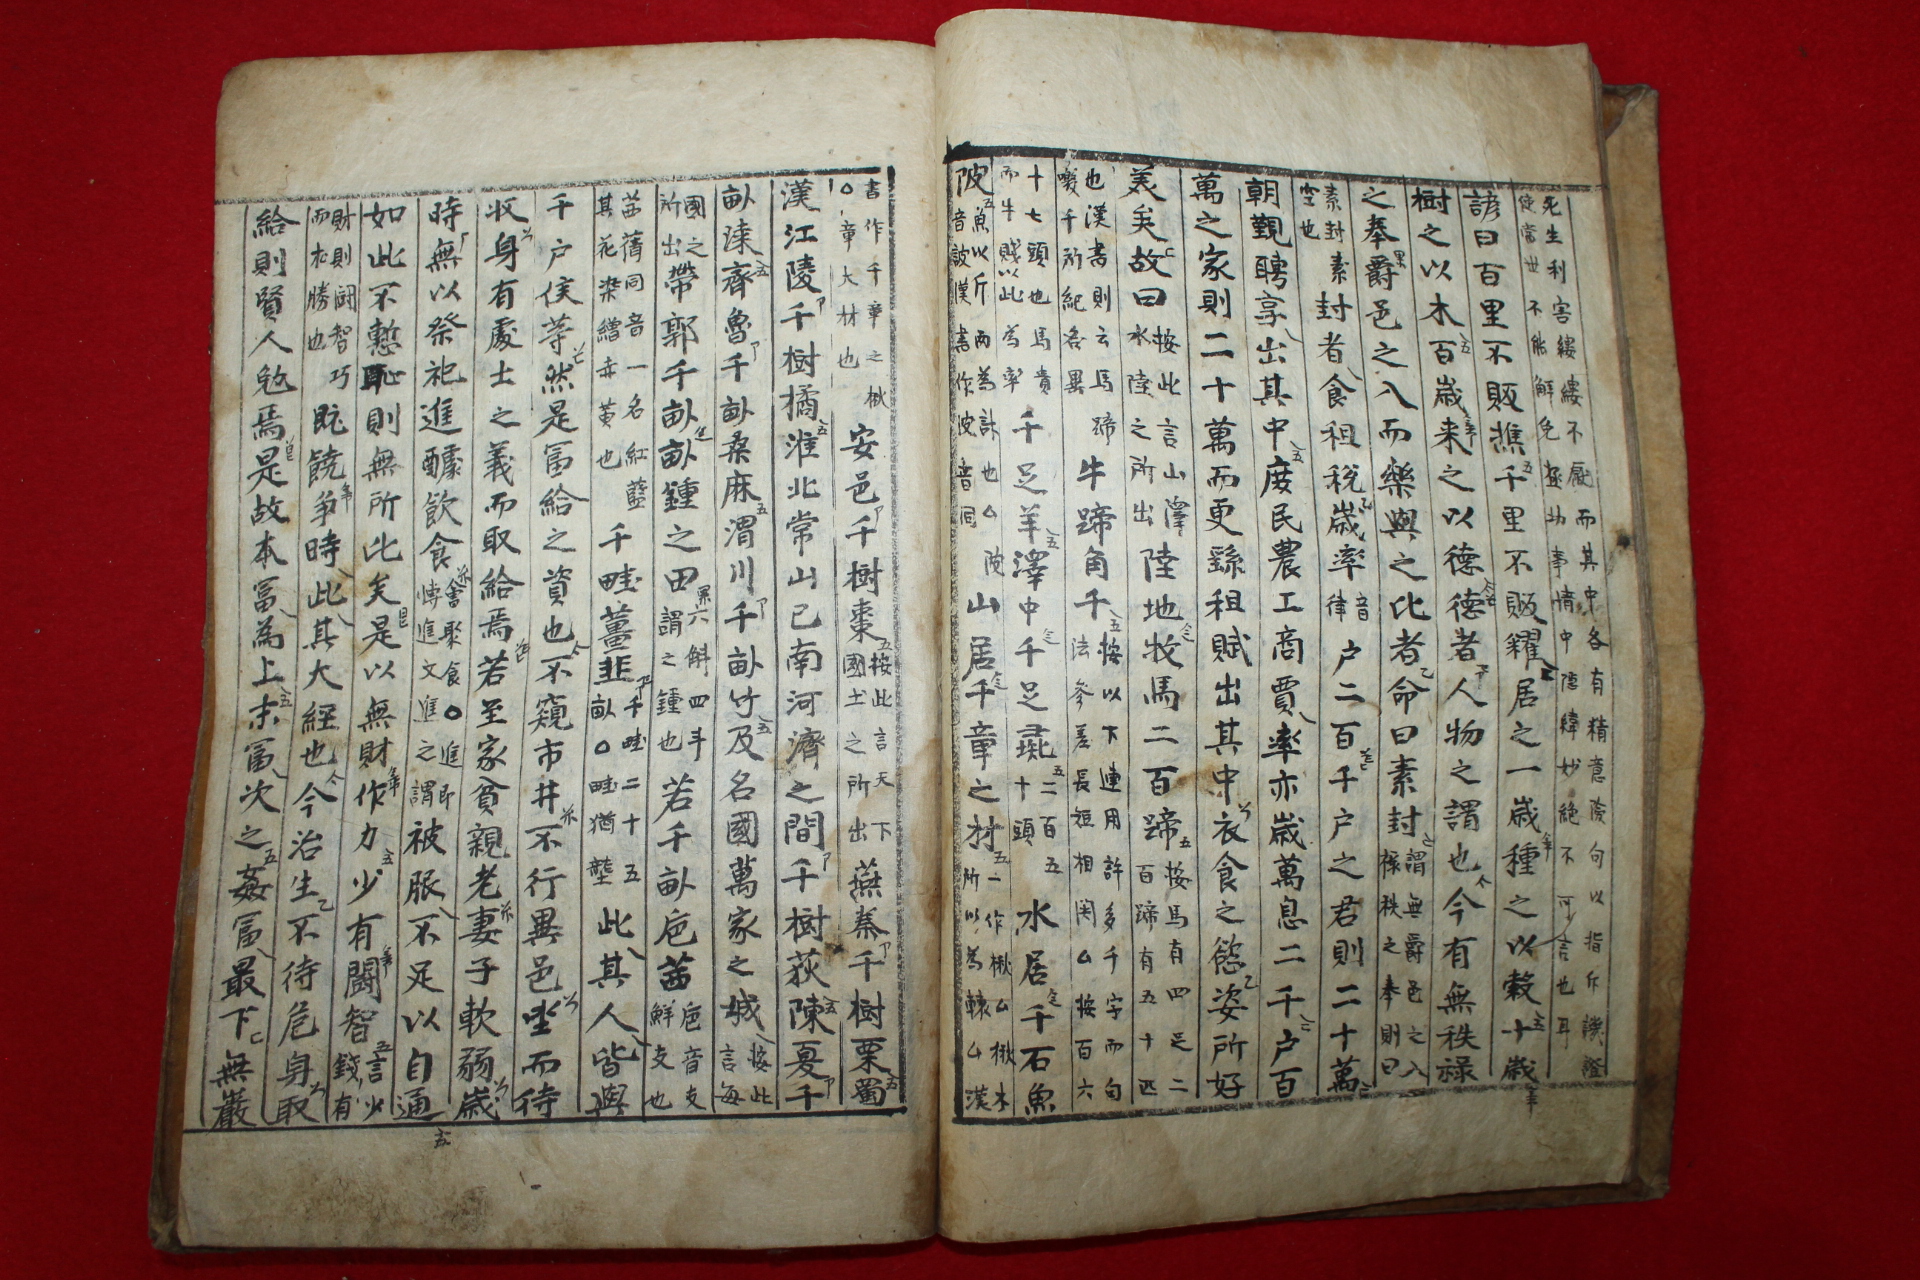 死生利害縷縷不厭而其中各有精意險句以指斥譏證
使當世不能解免極功事情中隱緯妙絕不可言也耳
諺曰百里不販樵千里不販糴居之一歲種之以穀十歲
樹之以木百歲來之以德德者人物之謂也今有無秩祿
之奉爵邑之入而樂與之比者命曰素封謂無爵邑之入祿秩之奉則曰
素封素空也封者食租稅歲率音律戶二百千戶之君則二十萬
朝觀聘享出其中庶民農工商賈率亦歲萬息二千戶百
萬之家則二十萬而更繇租賦出其中衣食之慾姿所好
美矣故曰按此言山澤水陸之所出陸地牧馬二百蹄按馬有四足二百蹄有五十匹
也漢書則云馬蹄噭千所紀各異牛蹄角千按以下連用許多千字而句法參差長短相間厶按百六
十七頭也馬貴而牛賤以此為率千足羊澤中千足彘二百五十頭水居千石魚
陂魚以斤兩為計也厶陂音詖漢書作波音同山居千章之材一作楸厶楸木所以為轅厶漢
書作千章之楸○章大材也安邑千樹棗按此言天下國土之所出燕秦千樹栗蜀
漢江陵千樹橘淮北常山已南河濟之間千樹荻陳夏千
畝漆齊魯千畝桑麻渭川千畝竹及名國萬家之城按此言每
國之所出帶郭千畝畝鍾之田六斛四斗謂之鍾也若千畝巵茜巵音支鮮支也
茜蒨同音一名紅藍其花染繒赤黃也千畦薑韭千畦二十五畝○畦猶壟此其人皆與
千戶侯等然是富給之資也不窺市井不行異邑坐而待
收身有處士之義而取給焉若至家貧親老妻子軟弱歲
時無以祭祀進醵飲食會聚食○進即慱進文進之謂被服不足以自通
如此不慙恥則無所比矣是以無財作力少有鬪智言少有錢
財則鬪智巧而求勝也旣饒爭時此其大經也今治生不待危身取
給則賢人勉焉是故本富為上末富次之姦富最下無巖